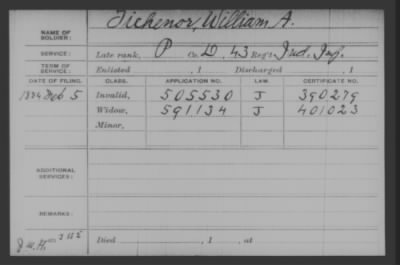 NAME OF SOLDIER: Tichenor, William A.
SERVICE: Late rank, P Co. D, 43 Reg't Ind. Inf.
TERM OF SERVICE: Enlisted , 1 Discharged , 1
DATE OF FILING. CLASS. APPLICATION NO. LAW. CERTIFICATE NO.
1884 Feb 5 Invalid, 505530 J 390279
Widow, 591134 J 401023
Minor,
ADDITIONAL SERVICES:
REMARKS:
Died , 1 , at